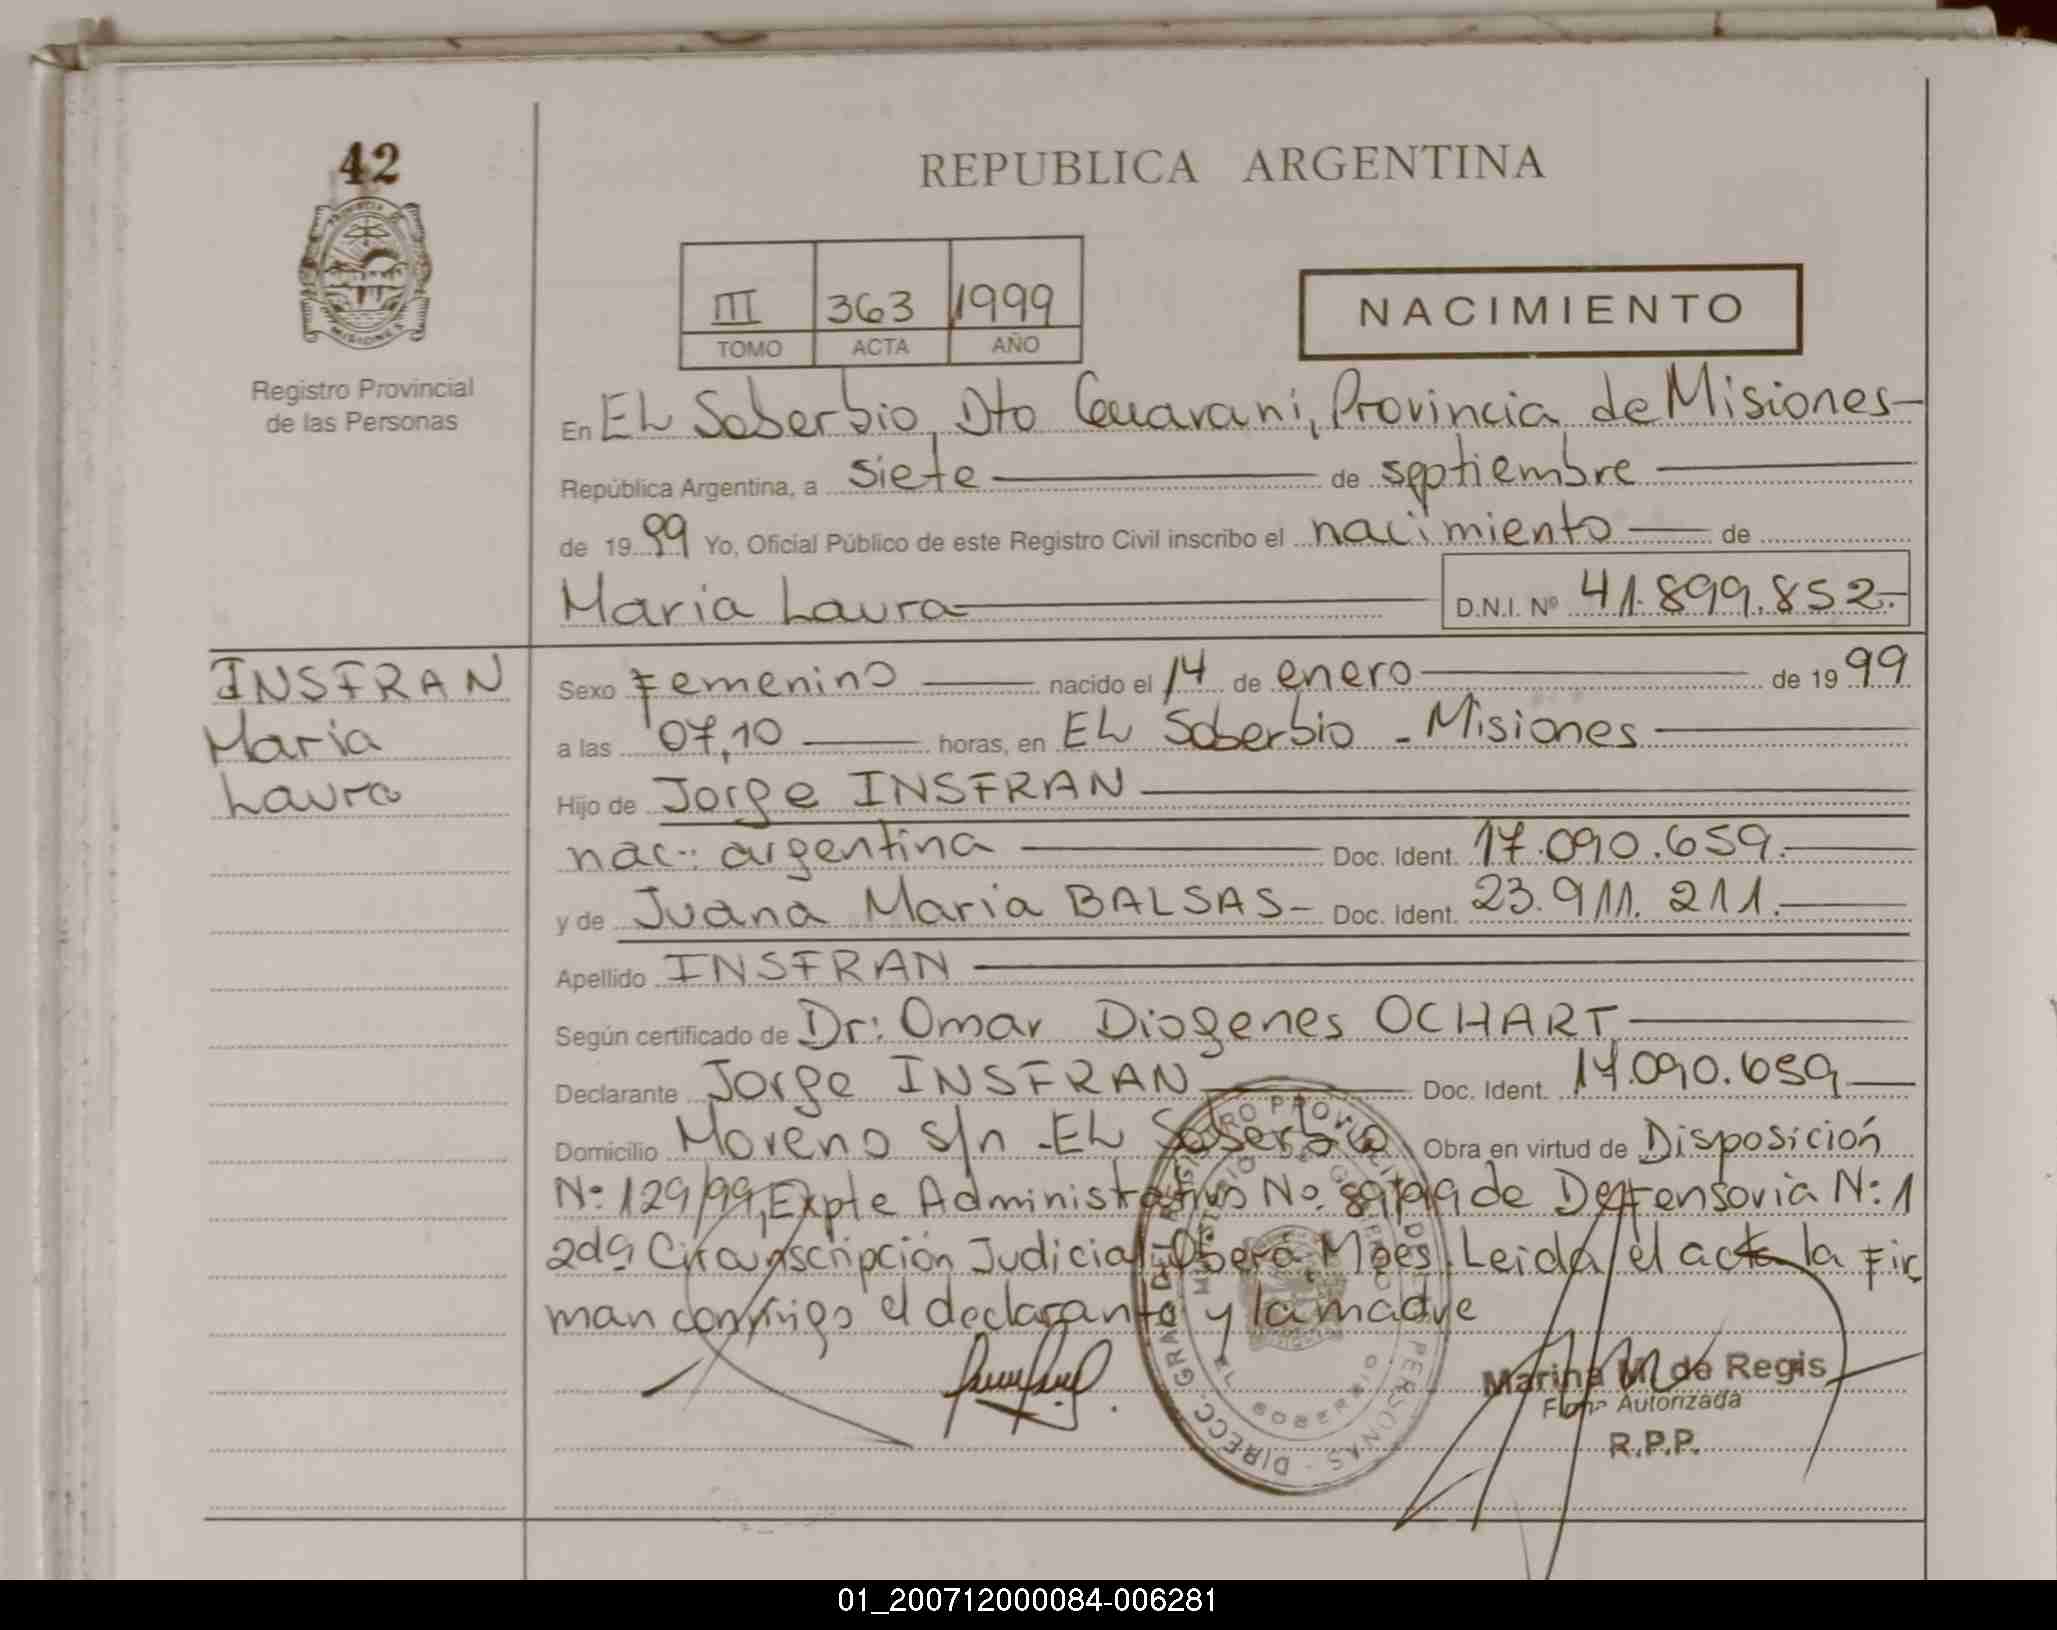 42
REPUBLICA ARGENTINA
PROVINCIA DE
MISIONES
Registro Provincial
de las Personas
III 363 1999
TOMO ACTA AÑO
NACIMIENTO
En EL Soberbio, Dto Guarani, Provincia de Misiones
República Argentina, a siete de septiembre
de 1999 Yo, Oficial Público de este Registro Civil inscribo el nacimiento de
Maria Laura D.N.I. Nº 41.899.852.-
INSFRAN
Maria
Laura
Sexo Femenino nacido el 14 de enero de 1999
a las 07,10 horas, en EL Soberbio - Misiones
Hijo de Jorge INSFRAN
nac: argentina Doc. Ident. 17.090.659.
y de Juana Maria BALSAS- Doc. Ident. 23.911.211.
Apellido INSFRAN
Según certificado de Dr: Omar Diogenes OCHART
Declarante Jorge INSFRAN Doc. Ident. 17.090.659
Domicilio Moreno s/n - EL Soberbio Obra en virtud de Disposición
Nº 129/99, Expte Administrativo Nº 89/99 de Defensoria Nº 1
2da Circunscripción Judicial Oberá Mnes. Leida el acta la fir
man conmigo el declarante y la madre
DIRECC. GRAL. DEL REGISTRO PROVINCIAL DE LAS PERSONAS
MINISTERIO DE GOBIERNO
EL SOBERBIO
Marina M. de Regis
Firma Autorizada
R.P.P.
01_200712000084-006281